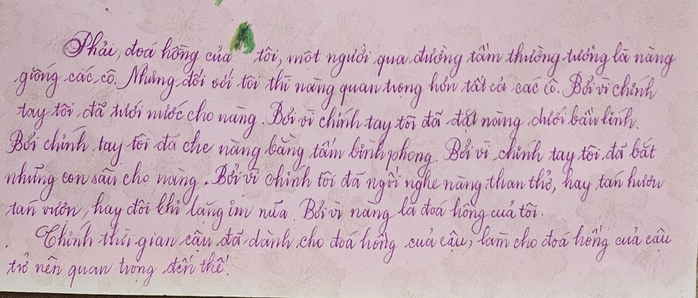 Phải, đoá hồng của tôi, một người qua đường tầm thường tưởng là nàng
giống các cô. Nhưng đối với tôi thì nàng quan trọng hơn tất cả các cô. Bởi vì chính
tay tôi đã tưới nước cho nàng. Bởi vì chính tay tôi đã đặt nàng dưới bầu kính.
Bởi chính tay tôi đã che nàng bằng tấm bình phong. Bởi vì chính tay tôi đã bắt
những con sâu cho nàng. Bởi vì chính tôi đã ngồi nghe nàng than thở, hay tán hươu
tán vượn, hay đôi khi lặng im nữa. Bởi vì nàng là đoá hồng của tôi.
Chính thời gian cậu đã dành cho đoá hồng của cậu, làm cho đoá hồng của cậu
trở nên quan trọng đến thế!